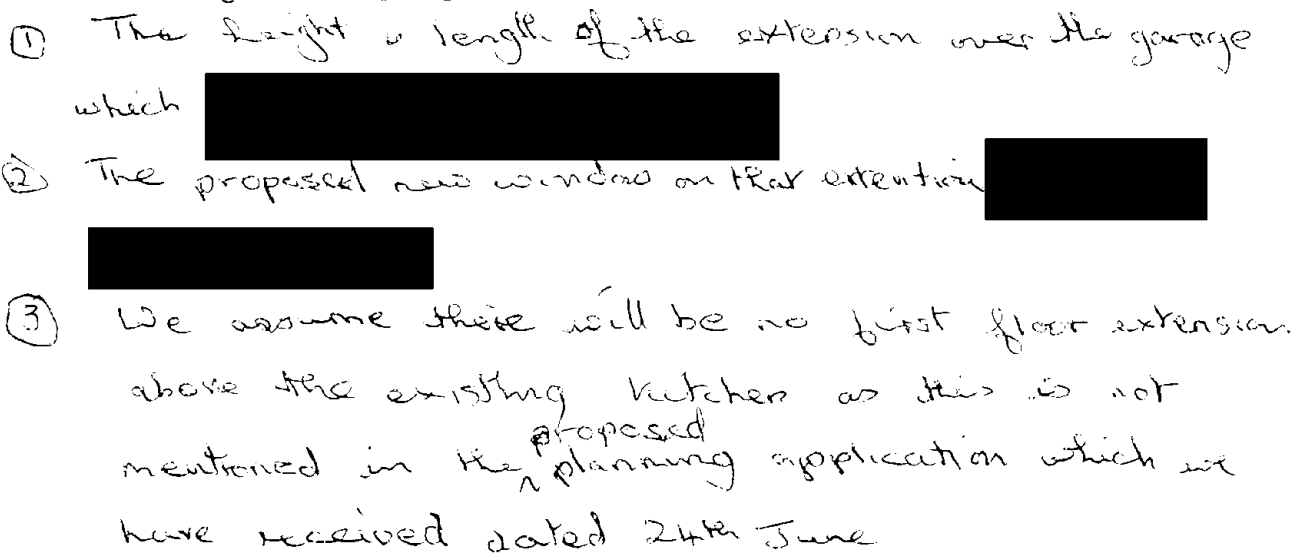 ① The height & length of the extension over the garage
which
② The proposed new window on that extention
③ We assume there will be no first floor extension
above the existing kitchen as this is not
proposed
mentioned in the ^ planning application which we
have received dated 24th June